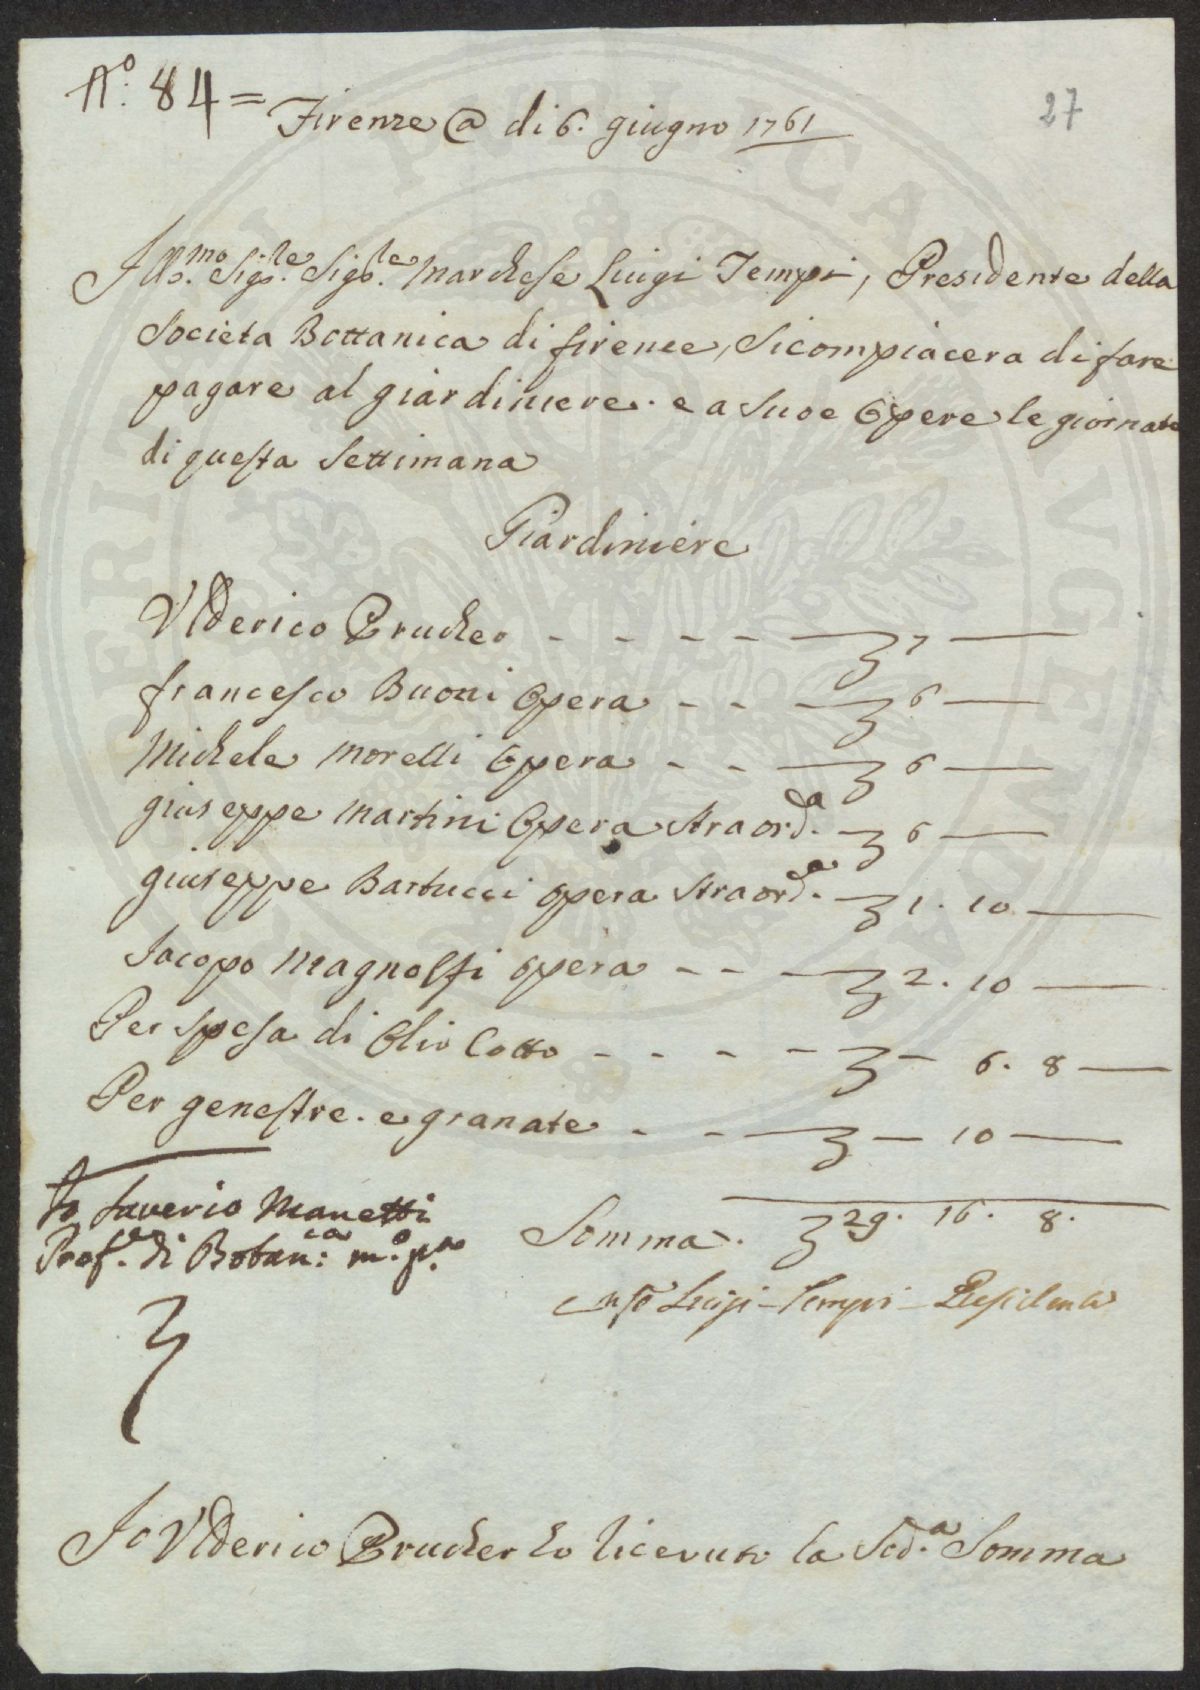 N.o 84 =
27
Firenze @ di 6. giugno 1761
Ill.mo Sig.re Sig.re Marchese Luigi Tempi, Presidente della
Societa Bottanica di firenze, si compiacera di fare
pagare al giardiniere. e a suoe Opere le giornate
di questa Settimana
Giardiniere
Vlderico Prucker - - - - 7 —
francesco Buoni Opera - - - 6 —
Michele Morelli Opera - - - 6 —
giuseppe Martini Opera straord.a - 6 —
giuseppe Bartucci opera straord.a - 1. 10 —
Jacopo Magnolfi opera - - - 2. 10 —
Per spesa di Olio Cotto - - - - — 6. 8 —
Per genestre. e granate - - - — 10 —
Somma. 29. 16. 8.
Io Saverio Manetti
Prof.e di Botan.ca m.o p.a
Luigi Tempi Presidente
Io Vlderico Prucker ho ricevuto la Sod.a Somma